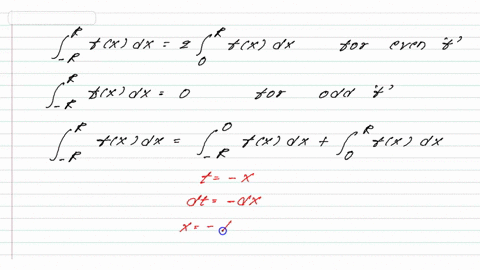 ∫_{-R}^{R} f(x) dx = 2 ∫_{0}^{R} f(x) dx for even 'f'
∫_{-R}^{R} f(x) dx = 0 for odd 'f'
∫_{-R}^{R} f(x) dx = ∫_{-R}^{0} f(x) dx + ∫_{0}^{R} f(x) dx
t = - x
dt = - dx
x = -